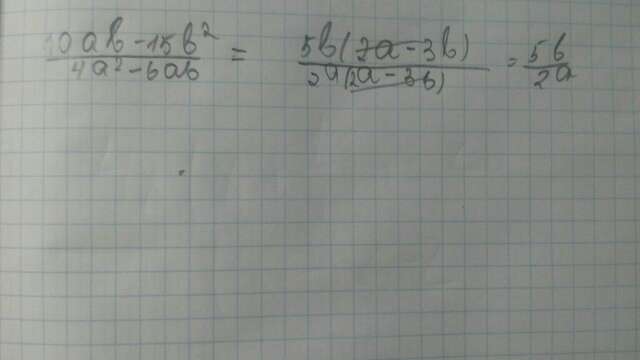 10ab-15b² / 4a²-6ab = 5b(2a-3b) / 2a(2a-3b) = 5b / 2a